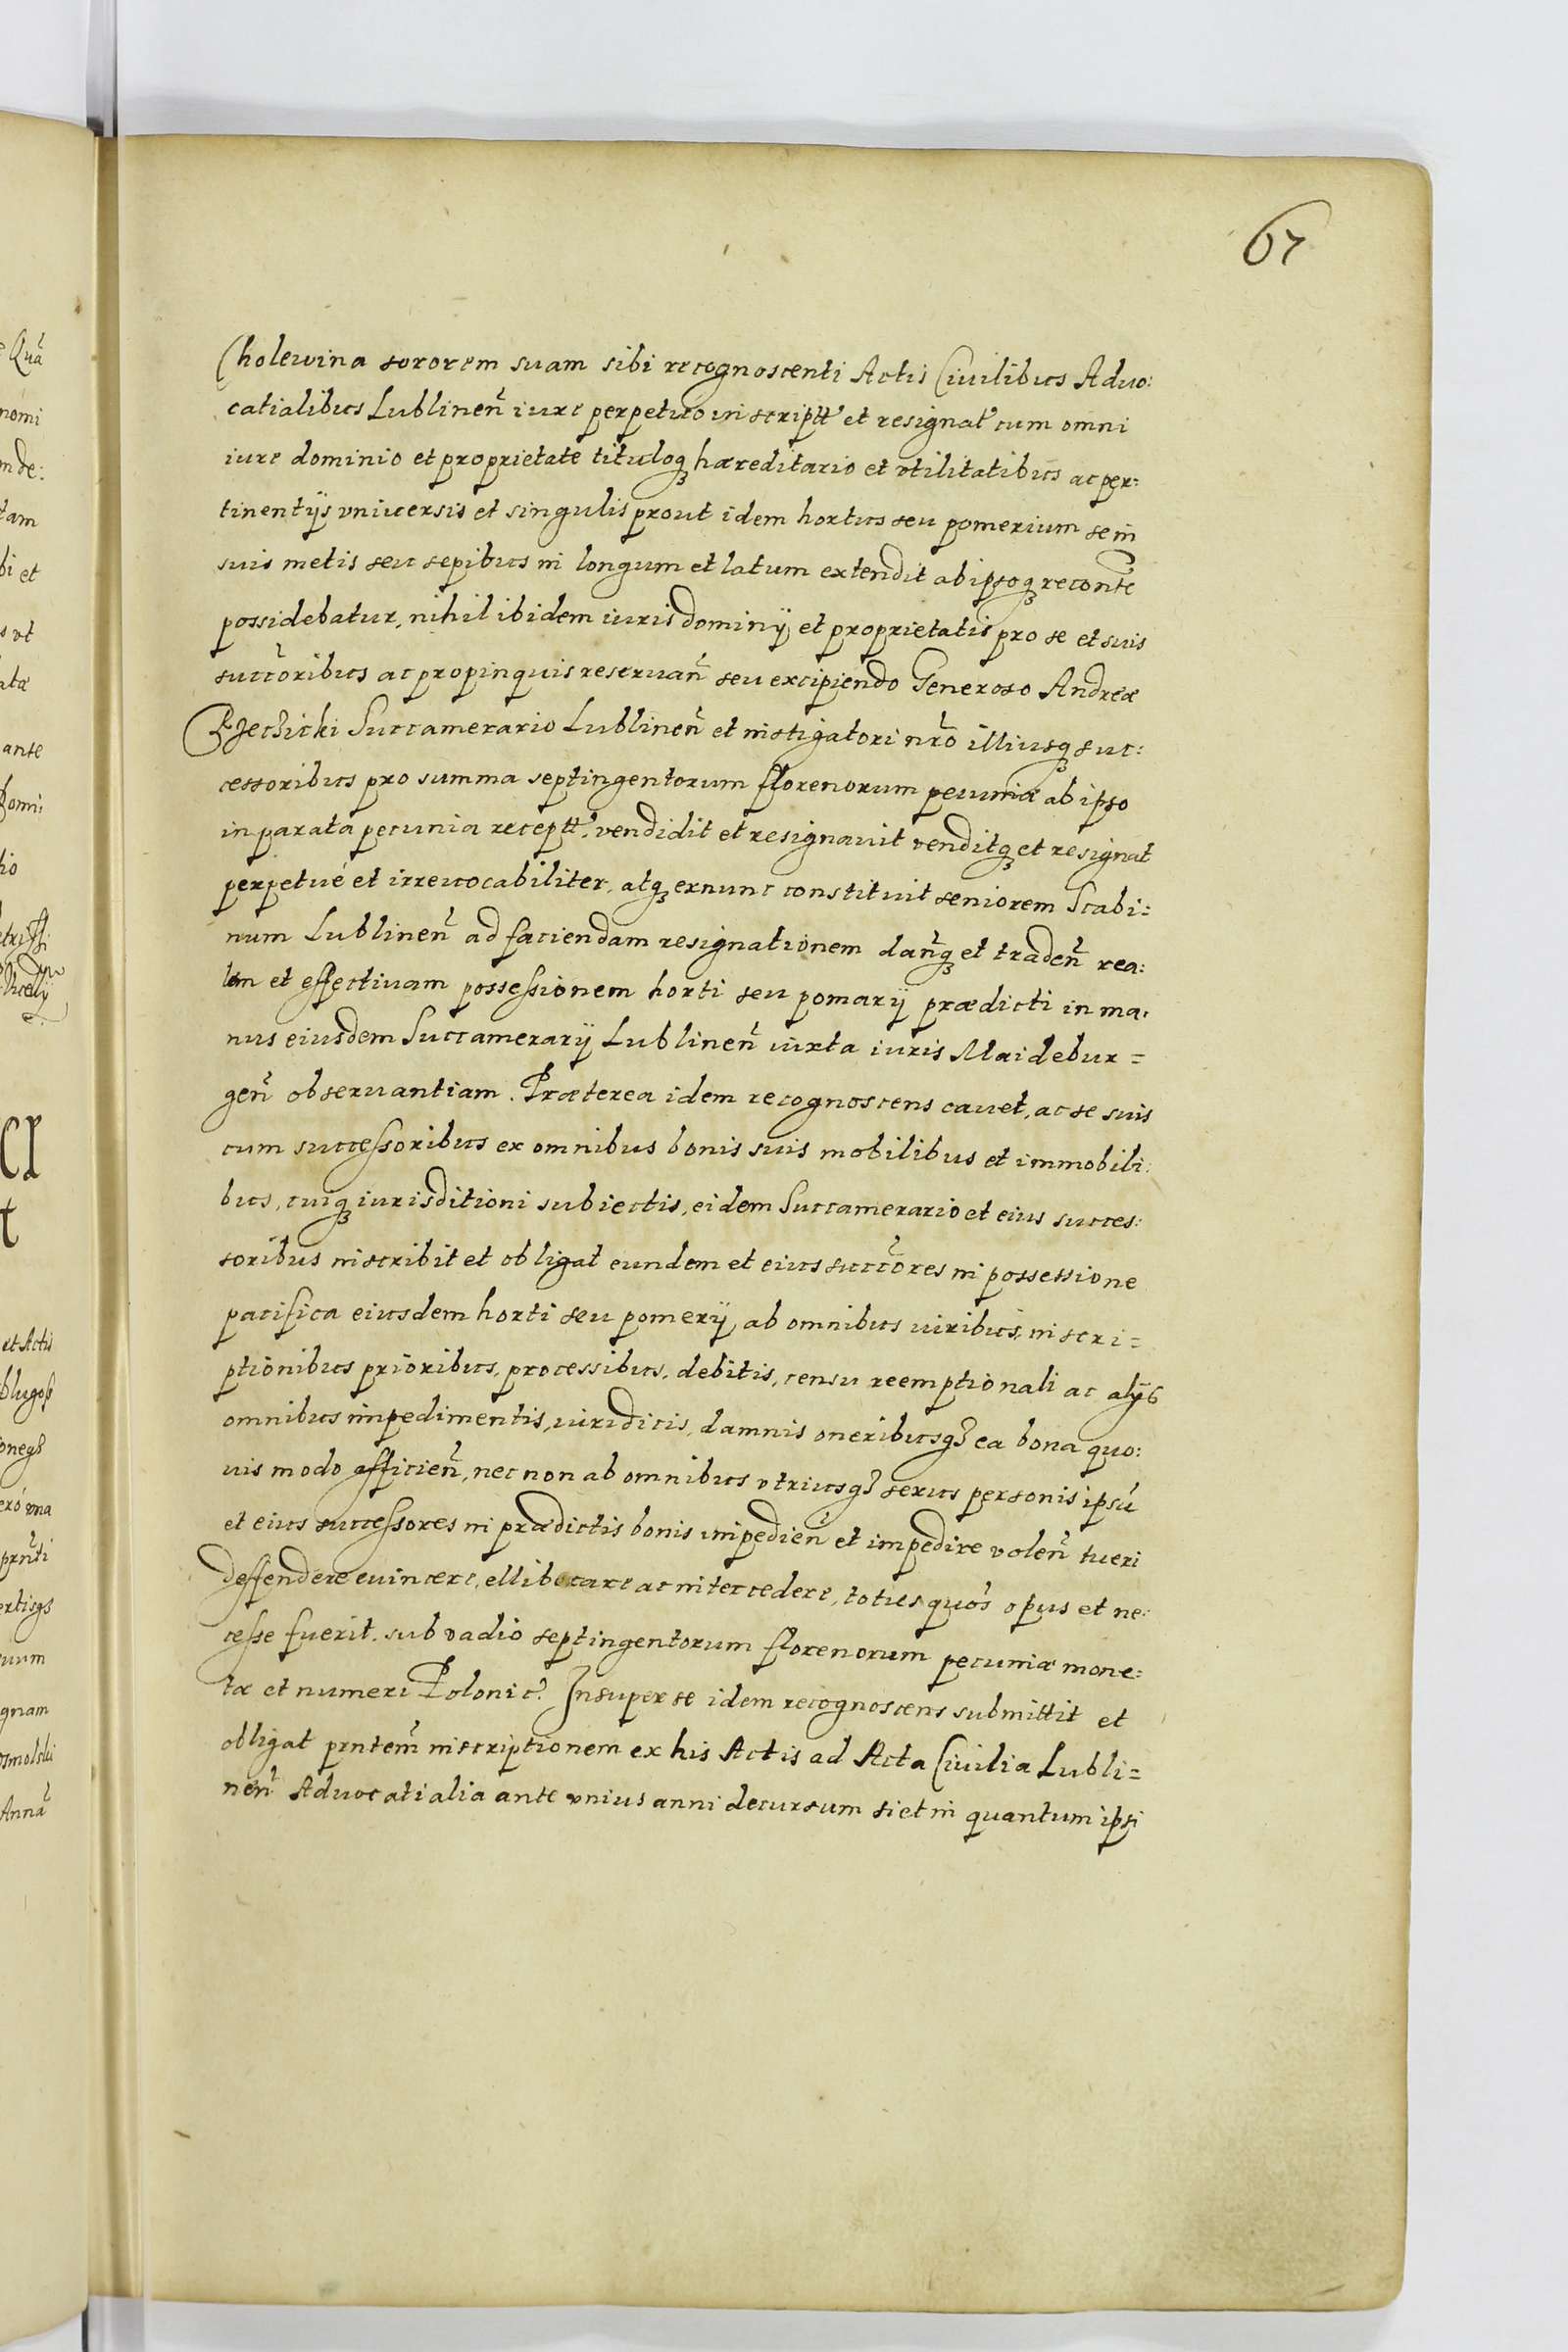 67
Cholewina sororem suam sibi recognoscenti Actis Ciuilibus Aduo:
catialibus Lublinen̄ iure perpetuo inscriptt' et resignat' cum omni
iure dominio et proprietate tituloq₃ hæreditario et vtilitatibus ac per:
tinentÿs vniuersis et singulis prout idem hortus seu pomerium se in
suis metis seu sepibus in longum et latum extendit ab ipsoq₃ recon̄te
possidebatur, nihil ibidem iuris dominÿ et proprietatis pro se et suis
succōribus ac propinquis reseruan̄ seu excipiendo Generoso Andreæ
Rzechicki Succamerario Lublinen̄ et instigatori nr̄o illiusq₃ suc:
cessoribus pro summa septingentorum florenorum pecuniæ ab ipso
in parata pecunia receptt'. vendidit et resignauit venditq₃ et resignat
perpetué et irreuocabiliter, atq₃ exnunc constituit seniorem Scabi=
num Lublinen̄ ad faciendam resignationem dan̄q₃ et traden̄ rea:
lem et effectiuam possessionem horti seu pomarÿ prædicti in ma:
nus eiusdem Succamerarÿ Lublinen̄ iuxta iuris Maidebur=
gen̄ obseruantiam. Præterea idem recognoscens cauet, ac se suis
cum successoribus ex omnibus bonis suis mobilibus et immobili:
bus, cuiq₃ iurisditioni subiectis, eidem Succamerario et eius succes:
soribus inscribit et obligat eundem et eius succōres in possessione
pacifica eiusdem horti seu pomerÿ ab omnibus iuribus, inscri=
ptionibus prioribus, processibus, debitis, censu reemptionali ac alÿs
omnibus impedimentis, iuridicis, damnis oneribusq₃ ea bona quo:
uis modo afficien̄, nec non ab omnibus vtriusq₃ sexus personis ipsū
et eius successores in prædictis bonis impedien̄ et impedire volen̄ tueri
deffendere euincere, elliberare ac intercedere, toties quo's opus et ne:
cesse fuerit. sub vadio septingentorum florenorum pecuniæ mone:
tæ et numeri Polonic'. Insuper se idem recognoscens submittit et
obligat prntem̄ inscriptionem ex his Actis ad Acta Ciuilia Lubli=
nen̄ Aduocatialia ante vnius anni decursum si et in quantum ipsi